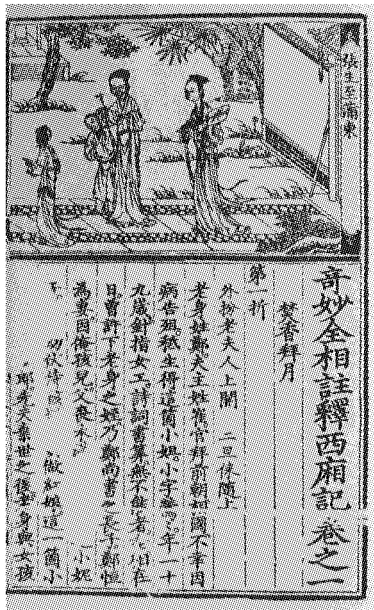 張生至蒲東
奇妙全相註釋西廂記 卷之一
焚香拜月
第一折
外扮老夫人上開 二旦俫隨上
老身姓鄭夫主姓崔官拜前朝相國不幸因
病告殂秪生得這箇小姐小字鶯鶯年一十
九歲針指女工詩詞書筭無不能者 相在
日曾許下老身之姪乃鄭尚書之長子鄭恒
為妻因俺孩兒父喪未 小妮
伏侍孩 做紅娘這一箇小
郎 夫棄世之後老身與女孩